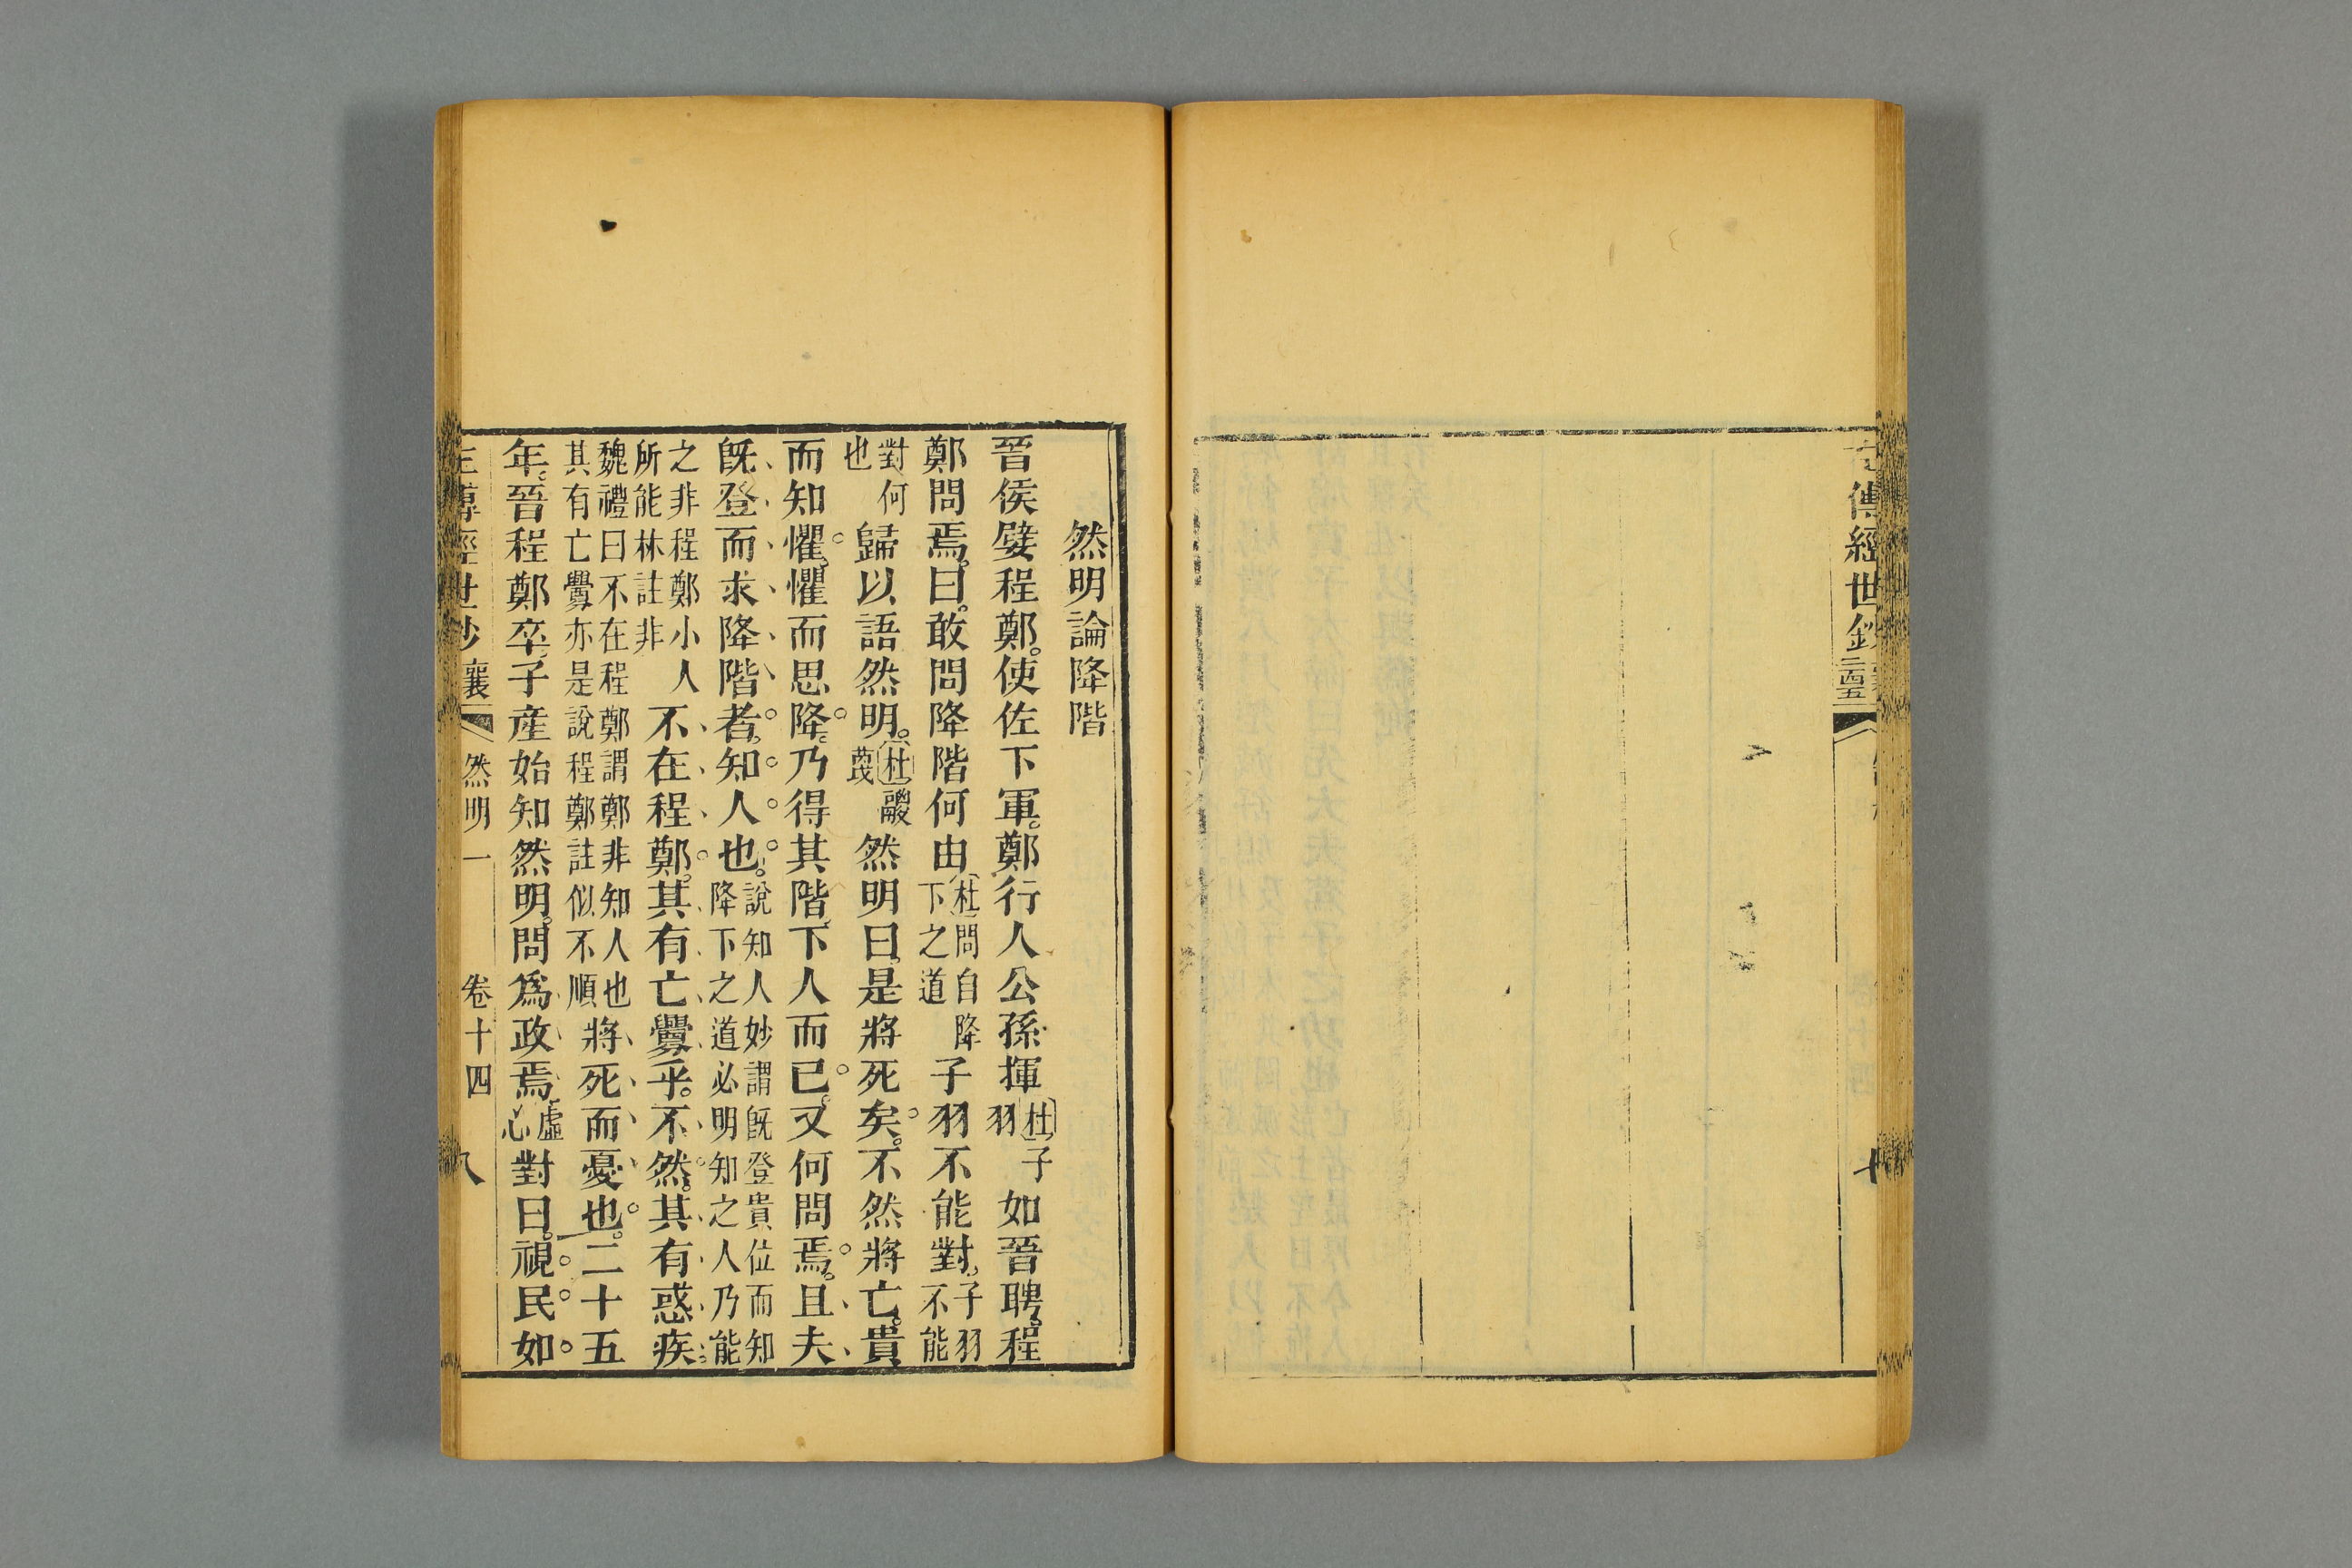 傳經世鈔
二十四五
然明論降階
晉侯嬖程鄭。使佐下軍。鄭行人公孫揮杜子羽如晉聘。程
鄭問焉。曰。敢問降階何由杜問自降下之道子羽不能對。子羽不能
對何也歸以語然明。杜鬷蔑然明曰。是將死矣。不然將亡。貴
而知懼。懼而思降。乃得其階。下人而已。又何問焉。且夫
旣登而求降階者。知人也。說知人妙謂旣登貴位而知降下之道必明知之人乃能
之非程鄭小人所能林註非不在程鄭。其有亡釁乎。不然。其有惑疾。
魏禮曰不在程鄭謂鄭非知人也其有亡釁亦是說程鄭註似不順將死而憂也。二十五
年。晉程鄭卒。子產始知然明。問爲政焉。虛心對曰。視民如
左傳經世鈔 襄 然明一 卷十四 八